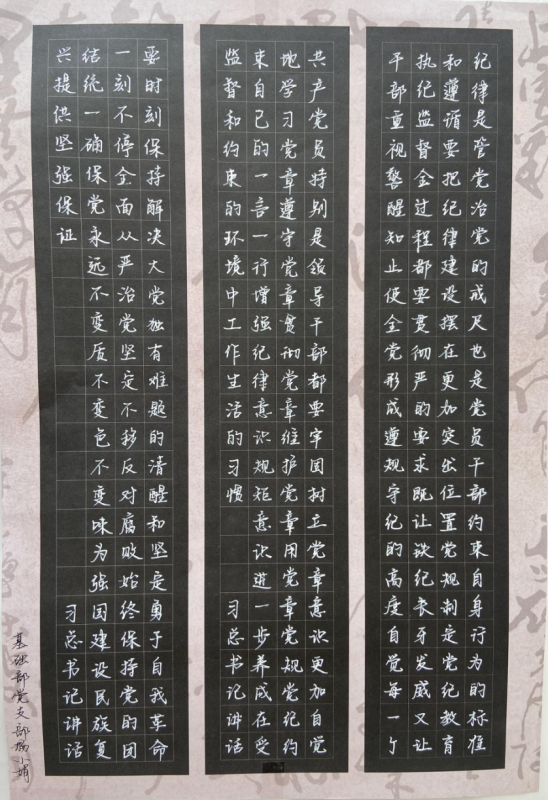 纪律是管党治党的戒尺也是党员干部约束自身行为的标准
和遵循要把纪律建设摆在更加突出位置党规制定党纪教育
执纪监督全过程都要贯彻严的要求既让铁纪长牙发威又让
干部重视警醒知止使全党形成遵规守纪的高度自觉每一个
共产党员特别是领导干部都要牢固树立党章意识更加自觉
地学习党章遵守党章贯彻党章维护党章用党章党规党纪约
束自己的一言一行增强纪律意识规矩意识进一步养成在受
监督和约束的环境中工作生活的习惯 习总书记讲话
要时刻保持解决大党独有难题的清醒和坚定勇于自我革命
一刻不停全面从严治党坚定不移反对腐败始终保持党的团
结统一确保党永远不变质不变色不变味为强国建设民族复
兴提供坚强保证 习总书记讲话
基础部党支部